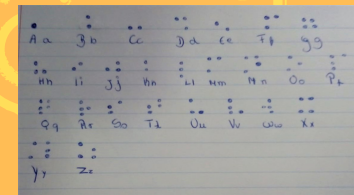 Aa Bb Cc Dd Ee Ff Gg
Hh Ii Jj Kk Ll Mm Nn Oo Pp
Qq Rr Ss Tt Uu Vv Ww Xx
Yy Zz